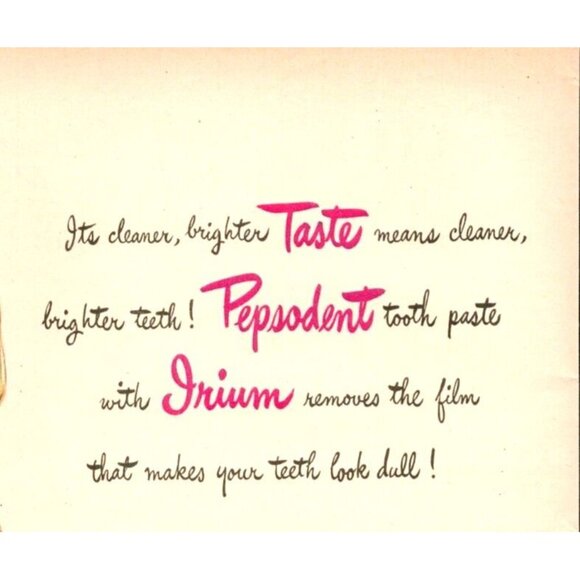 Its cleaner, brighter Taste means cleaner,
brighter teeth! Pepsodent tooth paste
with Irium removes the film
that makes your teeth look dull!